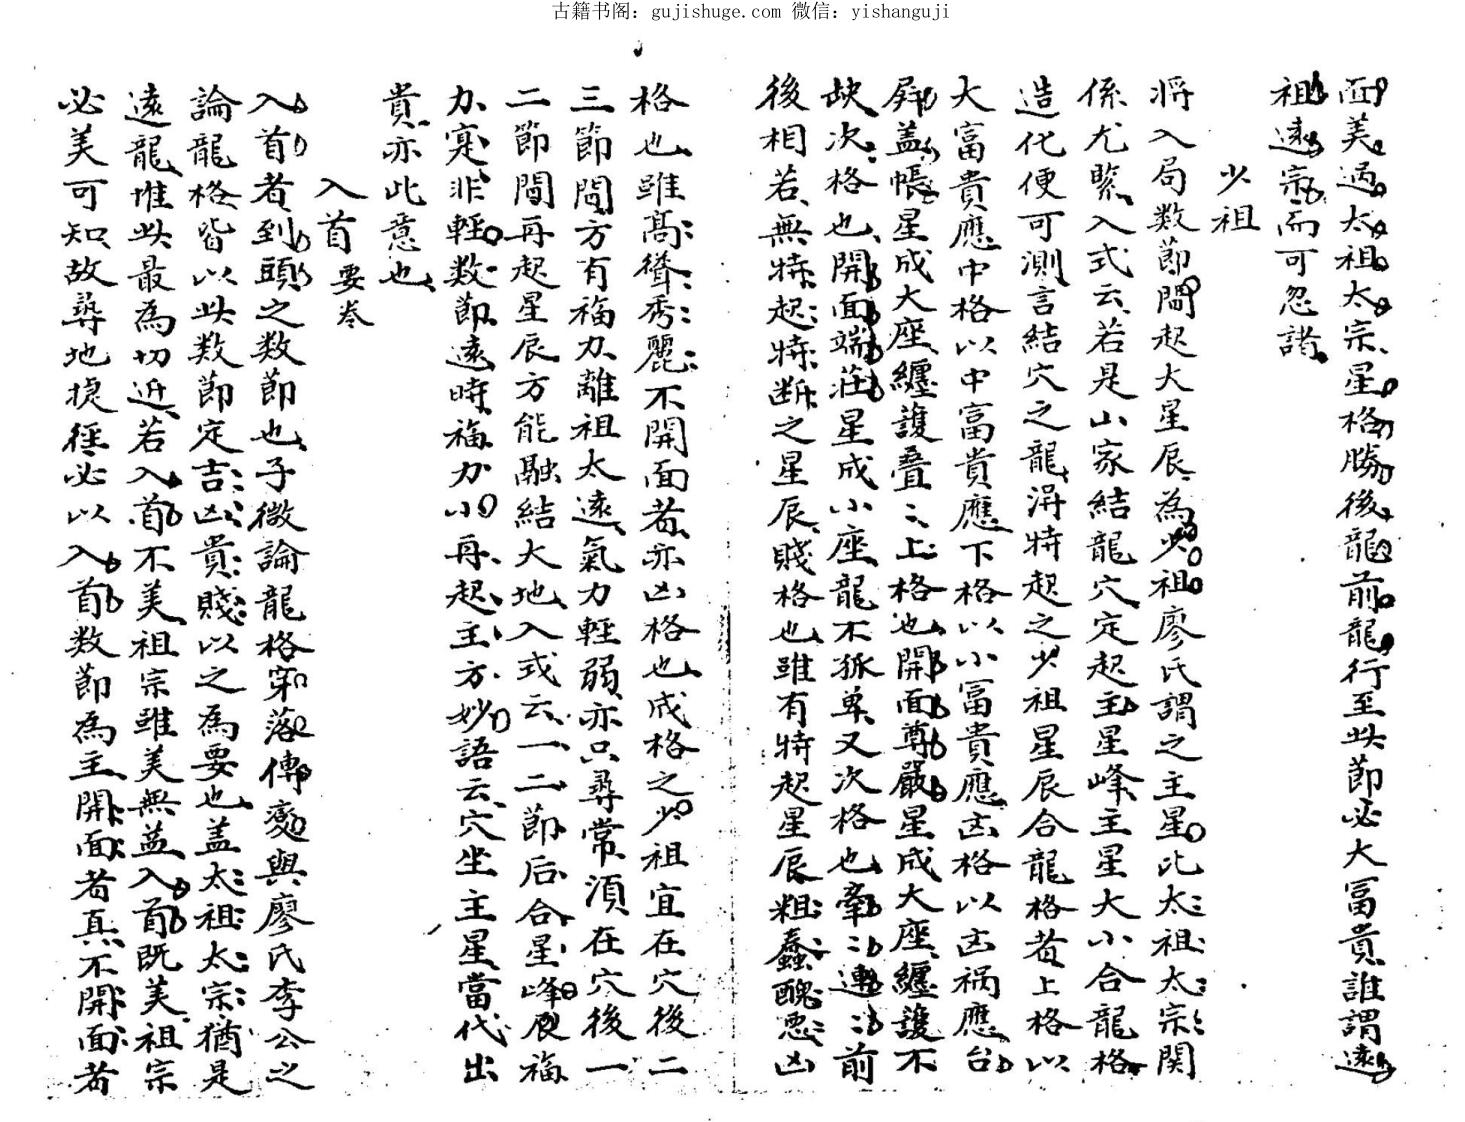 古籍书阁：gujishuge.com 微信：yishanguji
面美過太祖太宗星格勝後龍前龍行至此節必大冨貴誰謂遠
祖遠宗而可忽諸
少祖
将入局数節間起大星辰為少祖廖氏謂之主星比太祖太宗関
係尤緊入式云若是山家結龍穴定起主星峰主星大小合龍格
造化便可測言結穴之龍淂特起之少祖星辰合龍格者上格以
大富貴應中格以中富貴應下格以小冨貴應凶格以凶禍應台
屏盖帳星成大座纒護叠〻上格也開面尊嚴星成大座纒護不
缺次格也開面端莊星成小座龍不孤单又次格也牽〻連〻前
後相若無特起特断之星辰賤格也雖有特起星辰粗蠢醜惡凶
格也雖高聳秀麗不開面者亦凶格也成格之少祖宜在穴後二
三節間方有福力離祖太遠氣力輕弱亦只尋常湏在穴後一
二節間再起星辰方能融結大地入式云一二節后合星峰辰福
力寔非輕数節遠時福力小再起主方妙語云穴坐主星當代出
貴亦此意也
入首要卷
入首者到頭之数節也子微論龍格穿落傳变與廖氏李公之
論龍格皆以此数節定吉凶貴賤以之為要也盖太祖太宗猶是
遠龍惟此最為切近若入首不美祖宗雖美無益入首既美祖宗
必美可知故尋地捷徑必以入首数節為主開面者真不開面者